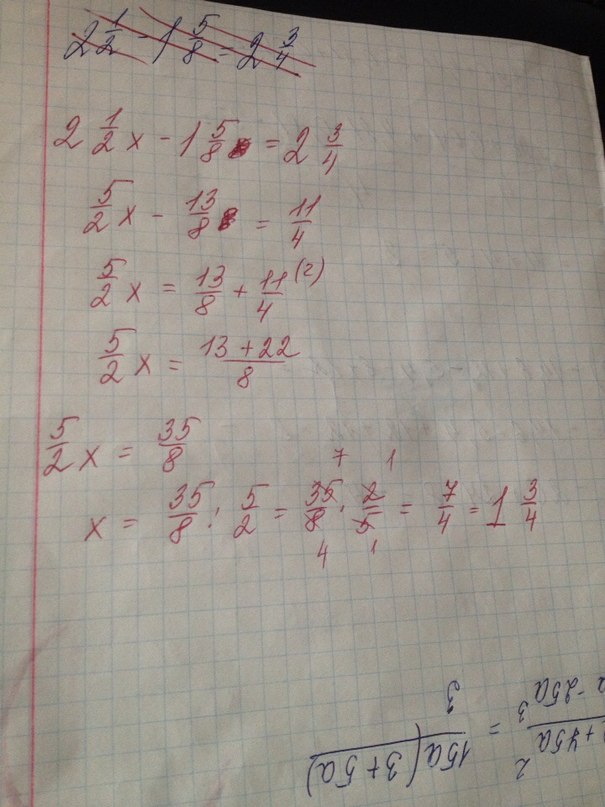 2 1/2 - 1 5/8 = 2 3/4
2 1/2 x - 1 5/8 = 2 3/4
5/2 x - 13/8 = 11/4
5/2 x = 13/8 + 11/4 (2)
5/2 x = 13+22/8
5/2 x = 35/8
x = 35/8 : 5/2 = 35/8 · 2/5 = 7/4 = 1 3/4
7 1
4 1
15a(3+5a)/3 =